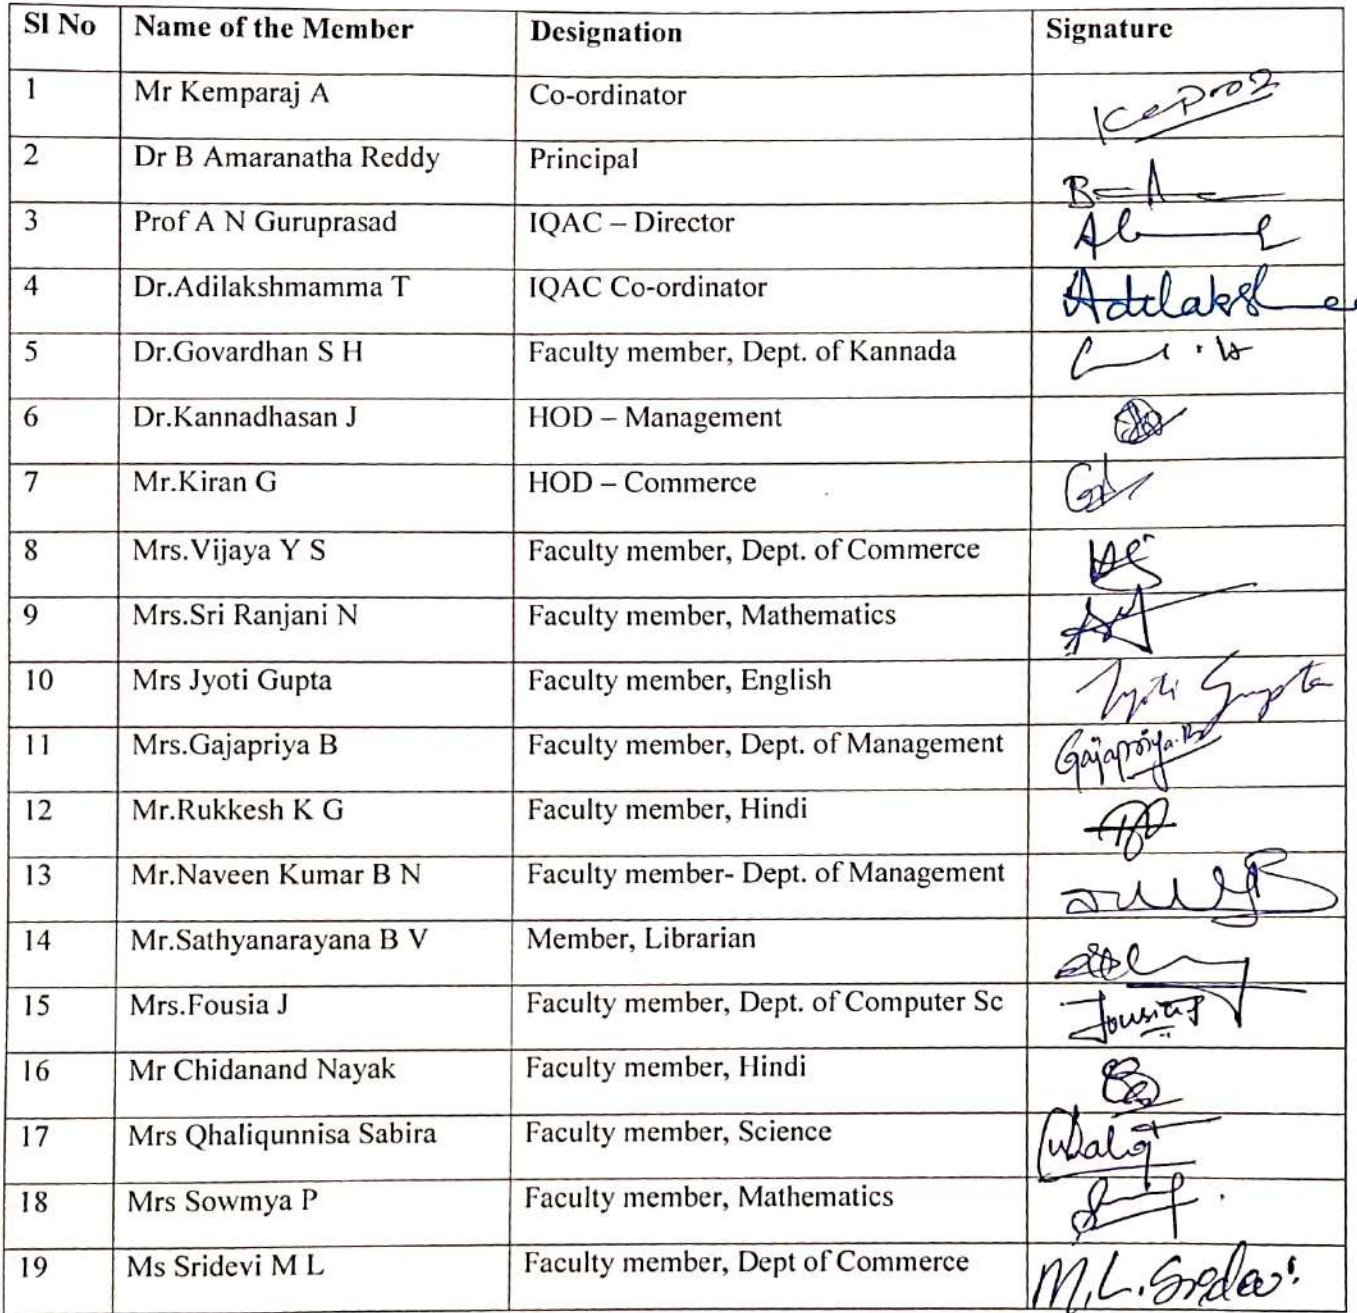 Sl No Name of the Member Designation Signature
1 Mr Kemparaj A Co-ordinator
2 Dr B Amaranatha Reddy Principal
3 Prof A N Guruprasad IQAC – Director
4 Dr.Adilakshmamma T IQAC Co-ordinator
5 Dr.Govardhan S H Faculty member, Dept. of Kannada
6 Dr.Kannadhasan J HOD – Management
7 Mr.Kiran G HOD – Commerce
8 Mrs.Vijaya Y S Faculty member, Dept. of Commerce
9 Mrs.Sri Ranjani N Faculty member, Mathematics
10 Mrs Jyoti Gupta Faculty member, English Jyoti Gupta
11 Mrs.Gajapriya B Faculty member, Dept. of Management Gajapriya.B
12 Mr.Rukkesh K G Faculty member, Hindi
13 Mr.Naveen Kumar B N Faculty member- Dept. of Management
14 Mr.Sathyanarayana B V Member, Librarian
15 Mrs.Fousia J Faculty member, Dept. of Computer Sc
16 Mr Chidanand Nayak Faculty member, Hindi
17 Mrs Qhaliqunnisa Sabira Faculty member, Science
18 Mrs Sowmya P Faculty member, Mathematics
19 Ms Sridevi M L Faculty member, Dept of Commerce M.L.Sridevi